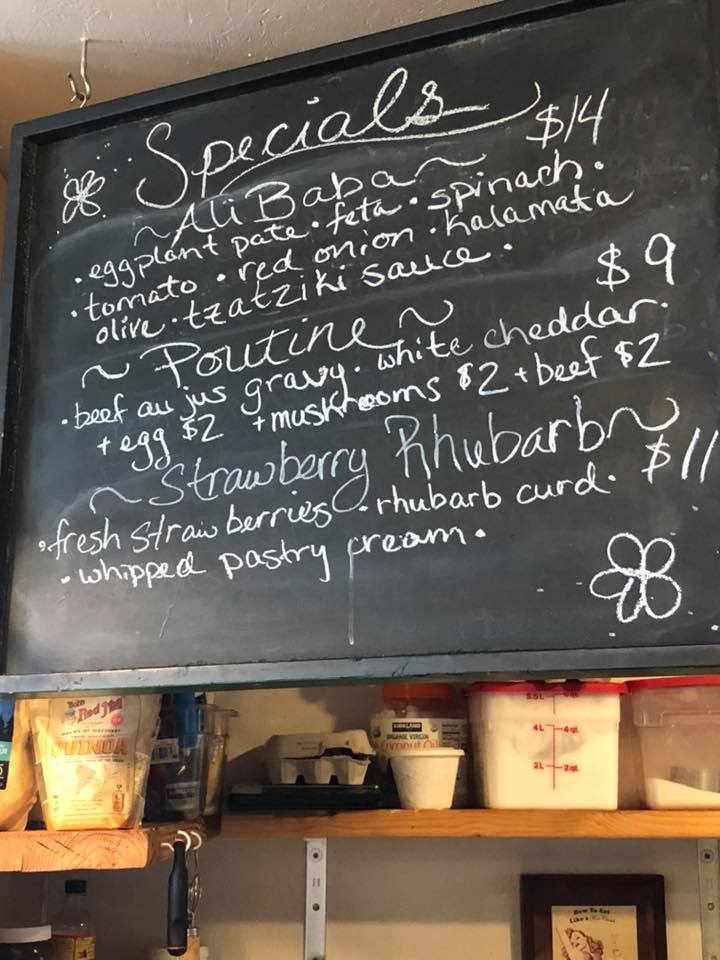 Specials
$14
~Ali Baba~
• eggplant pate • feta • spinach •
• tomato • red onion • kalamata
olive • tzatziki sauce •
$9
~ Poutine ~
• beef au jus gravy • white cheddar •
+ egg $2 + mushrooms $2 + beef $2
~ Strawberry Rhubarb ~
$11
• fresh strawberries • rhubarb curd •
• whipped pastry cream •
Bob's
Red Mill
QUINOA
KIRKLAND
ORGANIC VIRGIN
Coconut Oil
4L 4qt
2L 2qt
How To Eat
Like a